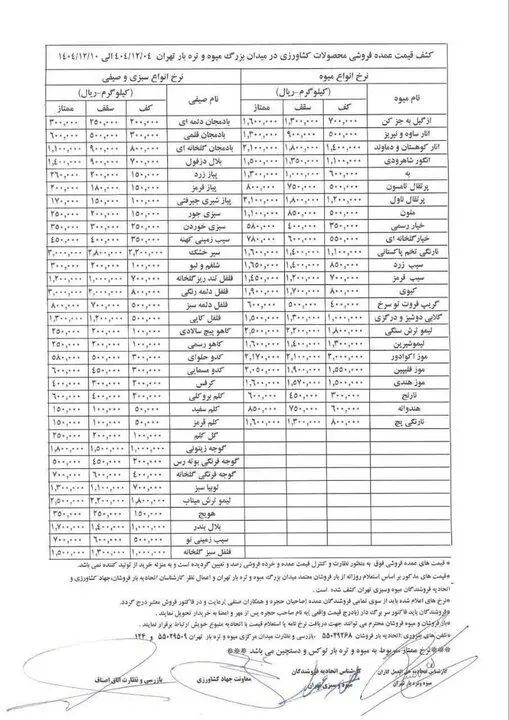 کشف قیمت عمده فروشی محصولات کشاورزی در میدان بزرگ میوه و تره بار تهران ۱۴۰۴/۱۲/۰۴ الی ۱۴۰۴/۱۲/۱۰
نرخ انواع میوه نرخ انواع سبزی و صیفی
نام میوه (کیلوگرم-ریال) نام صیفی (کیلوگرم-ریال)
کف سقف ممتاز کف سقف ممتاز
ازگیل به جز کن ۷۰۰,۰۰۰ ۱,۳۰۰,۰۰۰ ۱,۶۰۰,۰۰۰ بادمجان دلمه ای ۲۰۰,۰۰۰ ۲۵۰,۰۰۰ ۳۰۰,۰۰۰
انار ساوه و نیریز ۵۰۰,۰۰۰ ۹۰۰,۰۰۰ ۱,۳۰۰,۰۰۰ بادمجان قلمی ۳۰۰,۰۰۰ ۵۰۰,۰۰۰ ۶۰۰,۰۰۰
انار کوهستان و دماوند ۱,۴۰۰,۰۰۰ ۱,۸۰۰,۰۰۰ ۲,۱۰۰,۰۰۰ بادمجان گلخانه ای ۸۰۰,۰۰۰ ۹۰۰,۰۰۰ ۱,۱۰۰,۰۰۰
انگور شاهرودی ۱,۱۰۰,۰۰۰ ۱,۳۵۰,۰۰۰ ۱,۵۰۰,۰۰۰ بلال دزفول ۷۰۰,۰۰۰ ۹۰۰,۰۰۰ ۱,۴۰۰,۰۰۰
به ۶۰۰,۰۰۰ ۱,۰۰۰,۰۰۰ ۱,۳۰۰,۰۰۰ پیاز زرد ۱۵۰,۰۰۰ ۲۰۰,۰۰۰ ۲۶۰,۰۰۰
پرتقال تامسون ۵۰۰,۰۰۰ ۷۵۰,۰۰۰ ۸۰۰,۰۰۰ پیاز قرمز ۱۵۰,۰۰۰ ۱۸۰,۰۰۰ ۲۰۰,۰۰۰
پرتقال ناول ۱,۲۰۰,۰۰۰ ۱,۸۰۰,۰۰۰ ۲,۱۰۰,۰۰۰ پیاز شیری جیرفتی ۱۰۰,۰۰۰ ۱۵۰,۰۰۰ ۱۷۰,۰۰۰
ملون ۵۰۰,۰۰۰ ۸۵۰,۰۰۰ ۱,۱۰۰,۰۰۰ سبزی جور ۱۵۰,۰۰۰ ۲۰۰,۰۰۰ ۲۵۰,۰۰۰
خیار رسمی ۳۵۰,۰۰۰ ۴۰۰,۰۰۰ ۵۸۰,۰۰۰ سبزی خوردن ۲۵۰,۰۰۰ ۳۰۰,۰۰۰ ۳۵۰,۰۰۰
خیارگلخانه ای ۵۵۰,۰۰۰ ۶۰۰,۰۰۰ ۷۸۰,۰۰۰ سیب زمینی کهنه ۳۵۰,۰۰۰ ۴۰۰,۰۰۰ ۴۵۰,۰۰۰
نارنگی تخم پاکستانی ۱,۱۰۰,۰۰۰ ۱,۴۰۰,۰۰۰ ۱,۶۰۰,۰۰۰ سیر خشک ۲,۲۰۰,۰۰۰ ۲,۸۰۰,۰۰۰ ۳,۰۰۰,۰۰۰
سیب زرد ۸۵۰,۰۰۰ ۱,۴۰۰,۰۰۰ ۱,۶۵۰,۰۰۰ شلغم و لبو ۱۰۰,۰۰۰ ۲۰۰,۰۰۰ ۳۰۰,۰۰۰
سیب قرمز ۷۰۰,۰۰۰ ۱,۴۵۰,۰۰۰ ۱,۶۰۰,۰۰۰ فلفل تند ریزگلخانه ۷۰۰,۰۰۰ ۱,۰۰۰,۰۰۰ ۱,۲۰۰,۰۰۰
کیوی ۸۰۰,۰۰۰ ۱,۷۰۰,۰۰۰ ۱,۹۰۰,۰۰۰ فلفل دلمه رنگی ۸۰۰,۰۰۰ ۲,۰۰۰,۰۰۰ ۳,۰۰۰,۰۰۰
گریپ فروت تو سرخ ۴۰۰,۰۰۰ ۵۰۰,۰۰۰ ۶۰۰,۰۰۰ فلفل دلمه سبز ۵۰۰,۰۰۰ ۷۰۰,۰۰۰ ۸۰۰,۰۰۰
گلابی دوشیز و درگزی ۱,۰۰۰,۰۰۰ ۱,۳۰۰,۰۰۰ ۱,۵۰۰,۰۰۰ فلفل کاپی ۵۰۰,۰۰۰ ۱,۲۰۰,۰۰۰ ۱,۳۰۰,۰۰۰
لیمو ترش سنگی ۱,۸۰۰,۰۰۰ ۲,۲۰۰,۰۰۰ ۲,۵۰۰,۰۰۰ کاهو پیچ سالادی ۱۰۰,۰۰۰ ۲۰۰,۰۰۰ ۲۵۰,۰۰۰
لیموشیرین ۱,۳۰۰,۰۰۰ ۱,۴۰۰,۰۰۰ ۱,۶۰۰,۰۰۰ کاهو رسمی ۱۰۰,۰۰۰ ۲۰۰,۰۰۰ ۲۵۰,۰۰۰
موز اکوادور ۲,۰۰۰,۰۰۰ ۲,۱۰۰,۰۰۰ ۲,۱۷۰,۰۰۰ کدو حلوای ۳۰۰,۰۰۰ ۵۰۰,۰۰۰ ۵۸۰,۰۰۰
موز فلیپین ۱,۵۵۰,۰۰۰ ۱,۹۰۰,۰۰۰ ۲,۰۵۰,۰۰۰ کدو مسمایی ۳۰۰,۰۰۰ ۴۵۰,۰۰۰ ۶۰۰,۰۰۰
موز هندی ۱,۵۰۰,۰۰۰ ۱,۵۷۰,۰۰۰ ۱,۶۰۰,۰۰۰ کرفس ۲۰۰,۰۰۰ ۳۰۰,۰۰۰ ۴۰۰,۰۰۰
نارنج ۳۰۰,۰۰۰ ۴۵۰,۰۰۰ ۶۰۰,۰۰۰ کلم بروکلی ۲۰۰,۰۰۰ ۴۰۰,۰۰۰ ۶۰۰,۰۰۰
هندوانه ۶۰۰,۰۰۰ ۷۵۰,۰۰۰ ۸۵۰,۰۰۰ کلم سفید ۵۰,۰۰۰ ۱۰۰,۰۰۰ ۱۵۰,۰۰۰
نارنگی پیج ۸۰۰,۰۰۰ ۱,۳۰۰,۰۰۰ ۱,۶۰۰,۰۰۰ کلم قرمز ۵۰,۰۰۰ ۱۰۰,۰۰۰ ۱۵۰,۰۰۰
گل کلم ۱۰۰,۰۰۰ ۲۰۰,۰۰۰ ۲۵۰,۰۰۰
گوجه زیتونی ۱,۰۰۰,۰۰۰ ۱,۵۰۰,۰۰۰ ۱,۸۰۰,۰۰۰
گوجه فرنگی بوته رس ۲۰۰,۰۰۰ ۴۵۰,۰۰۰ ۵۰۰,۰۰۰
گوجه فرنگی گلخانه ۴۰۰,۰۰۰ ۶۰۰,۰۰۰ ۷۰۰,۰۰۰
لوبیا سبز ۷۰۰,۰۰۰ ۱,۱۰۰,۰۰۰ ۱,۳۰۰,۰۰۰
لیمو ترش میناب ۱,۸۰۰,۰۰۰ ۲,۲۰۰,۰۰۰ ۲,۵۰۰,۰۰۰
هویج ۱۵۰,۰۰۰ ۲۵۰,۰۰۰ ۳۵۰,۰۰۰
بلال بندر ۱,۰۰۰,۰۰۰ ۱,۴۰۰,۰۰۰ ۱,۷۰۰,۰۰۰
سیب زمینی نو ۵۰۰,۰۰۰ ۶۰۰,۰۰۰ ۷۰۰,۰۰۰
فلفل سبز گلخانه ۱,۰۰۰,۰۰۰ ۱,۳۰۰,۰۰۰ ۱,۵۰۰,۰۰۰
* قیمت های عمده فروشی فوق به منظور نظارت و کنترل قیمت عمده و خرده فروشی رصد و تعیین گردیده است و به منزله خرید از تولید کننده نمی باشد.
*قیمت های مذکور بر اساس استعلام روزانه از بار فروشان معتمد میدان بزرگ میوه و تره بار تهران و اعمال نظر کارشناسان اتحادیه بار فروشان،جهاد کشاورزی و
اتحادیه فروشندگان میوه وسبزی تهران کشف شده است.
*نرخ های اعلام شده باید از سوی تمامی فروشندگان عمده (صاحبان حجره و همکاران صنفی )رعایت و در فاکتور فروش معتبر درج گردد.
*فروشندگان باید فاکتور سر برگ دار (بادرج قیمت واقعی )به نام صاحب حجره پس از مهر و امضا به خریدار تحویل نمایند.
*بارفروشان و میوه فروشان محترم می توانند جهت دریافت نرخ نامه یا استعلام قیمت با اتحادیه متبوع خویش ارتباط برقرار نمایند.
*تلفن های ضروری :اتحادیه بار فروشان ۵۵۰۴۹۲۶۸ -بازرسی و نظارت میدان مرکزی میوه و تره بار تهران ۵۵۰۲۹۵۰۹ و ۱۲۴
***نرخ ممتاز مربوط به میوه و تره بار لوکس و دستچین می باشد ***
کارشناس اتحادیه حق العمل کاران کارشناس اتحادیه فروشندگان معاونت جهاد کشاورزی بازرسی و نظارت اتاق اصناف
میوه وتره بار تهران میوه و سبزی تهران